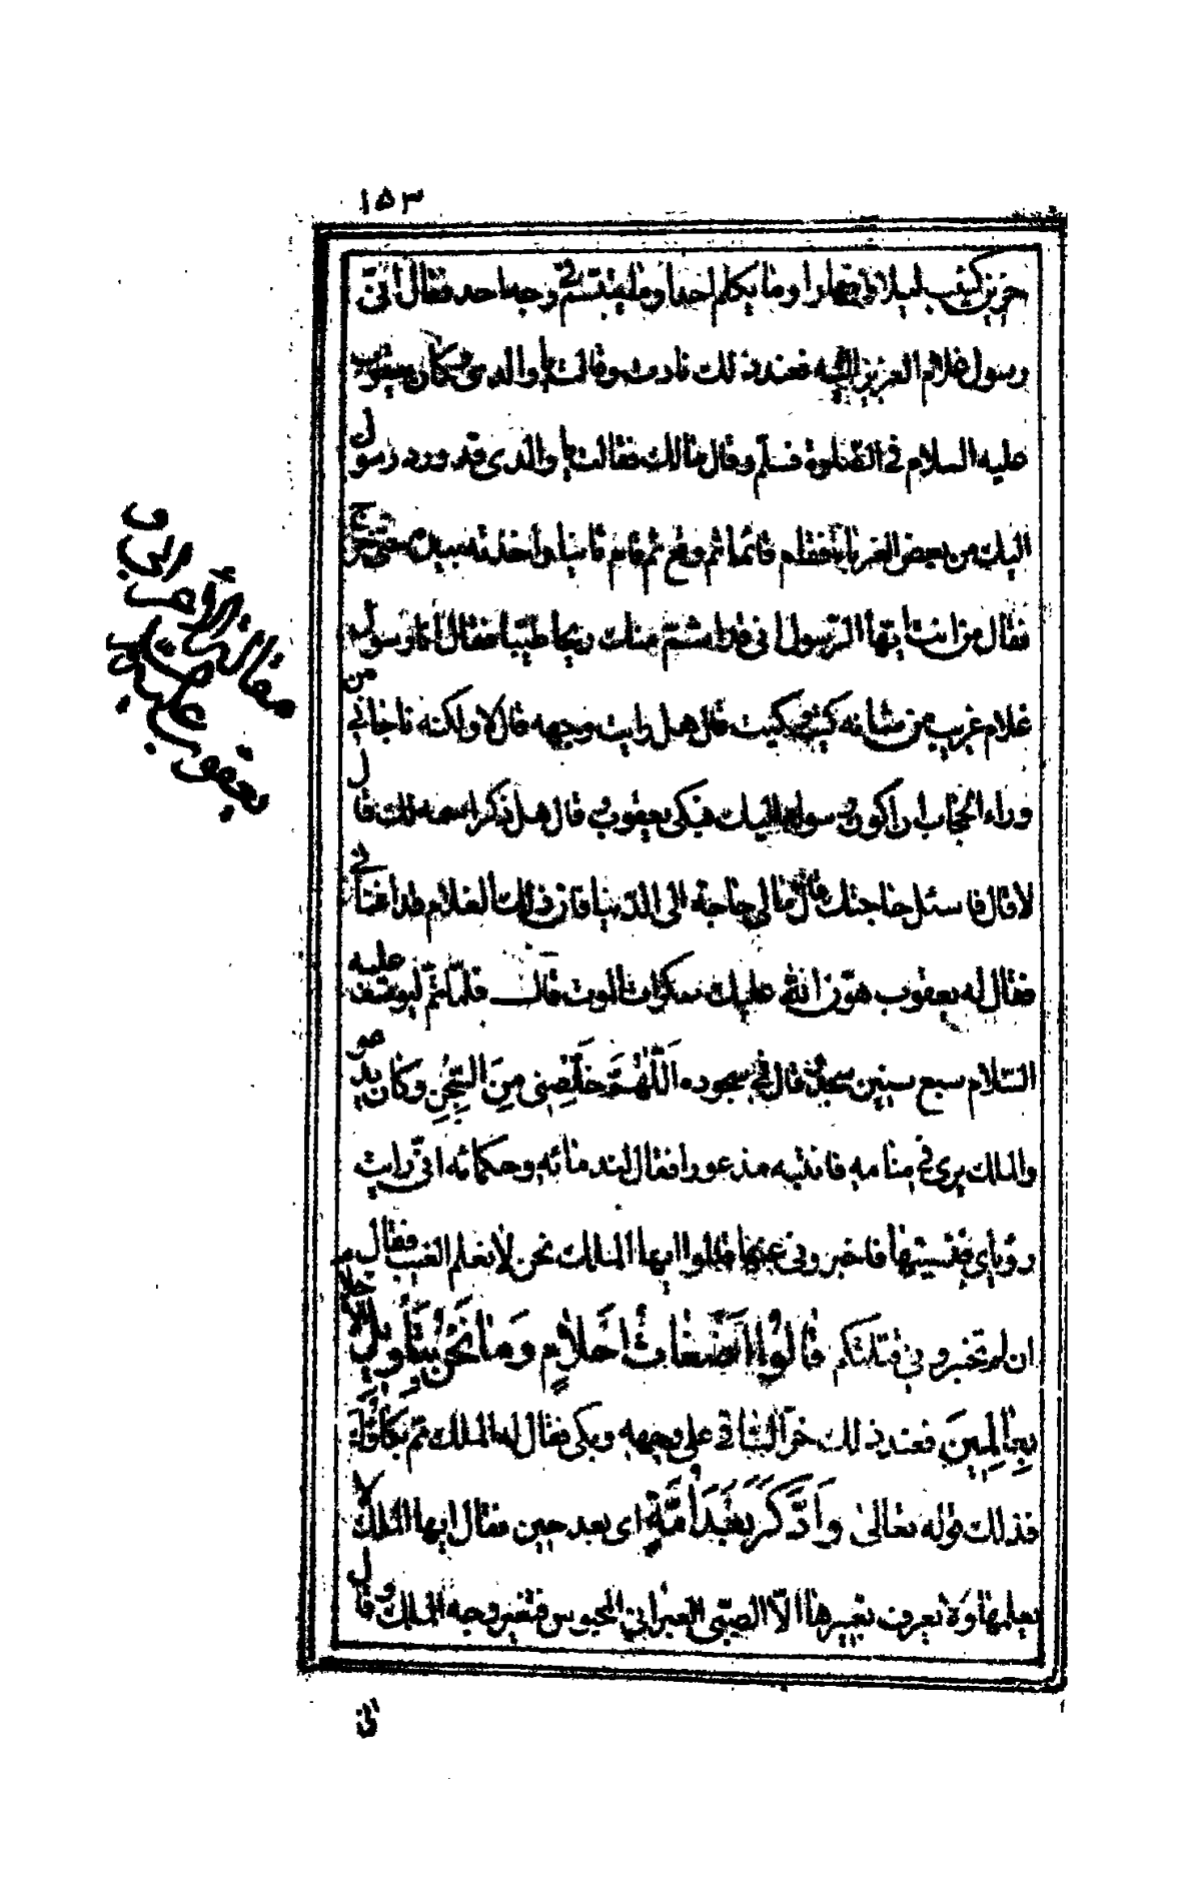 ١٥٣
حزين كئيب ليلا ونهارا وما يكلم احدا وما يتبسم في وجه احد فقال انى
رسول غلام العزيز اليه فعند ذلك نادت وقالت يا والدى وكان يعقوب
عليه السلام فى الصلوة فسلم وقال مالك فقالت يا والدى قد ورد رسول
اليك من بعض الغرباء فقام قائما ثم وقع ثم قام ثانيا واخذته بيده حتى خرج
فقال من انت ايها الرسول انى قد اشتم منك ريحا طيبا فقال انا رسول
غلام غريب من شانه كيت وكيت قال هل رايت وجهه قال لا ولكنه ناجانى من
وراء الحجاب ان اكون رسوله اليك فبكى يعقوب قال هل ذكر اسمه لك قال
لا قال فاسئل حاجتك قال مالى حاجة الى الدنيا فان ذلك الغلام قد اغنانى
فقال له يعقوب هون الله عليك سكرات الموت قال فلما تم ليوسف عليه
السلام سبع سنين سجد قال في سجوده اَللّٰهُمَّ خَلِّصْنِى مِنَ السِّجْنِ وكان يدعو
والملك يرى في منامه فانتبه مذعورا فقال لندمائه وحكمائه انى رايت
رؤياى فنسيتها فاخبرونى عنها قالوا ايها الملك نحن لا نعلم الغيب فقال
ان لم تخبرونى قتلتكم قَالُوا اَضْغَاثُ اَحْلَامٍ وَمَا نَحْنُ بِتَأْوِيلِ الْاَحْلَامِ
بِعَالِمِينَ فعند ذلك خر الساقى على وجهه وبكى فقال له الملك مم بكاؤك
فذلك قوله تعالى وَادَّكَرَ بَعْدَ اُمَّةٍ اى بعد حين فقال ايها الملك لا
يعلمها ولا يعرف تعبيرها الا الصبى العبرانى المحبوس فتغير وجه الملك وقال
مقالة الأعرابى و
يعقوب عليه